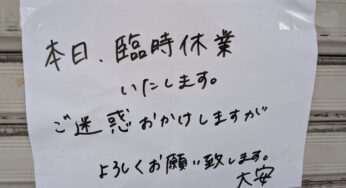 本日、臨時休業
いたします。
ご迷惑おかけしますが
よろしくお願い致します。
大安